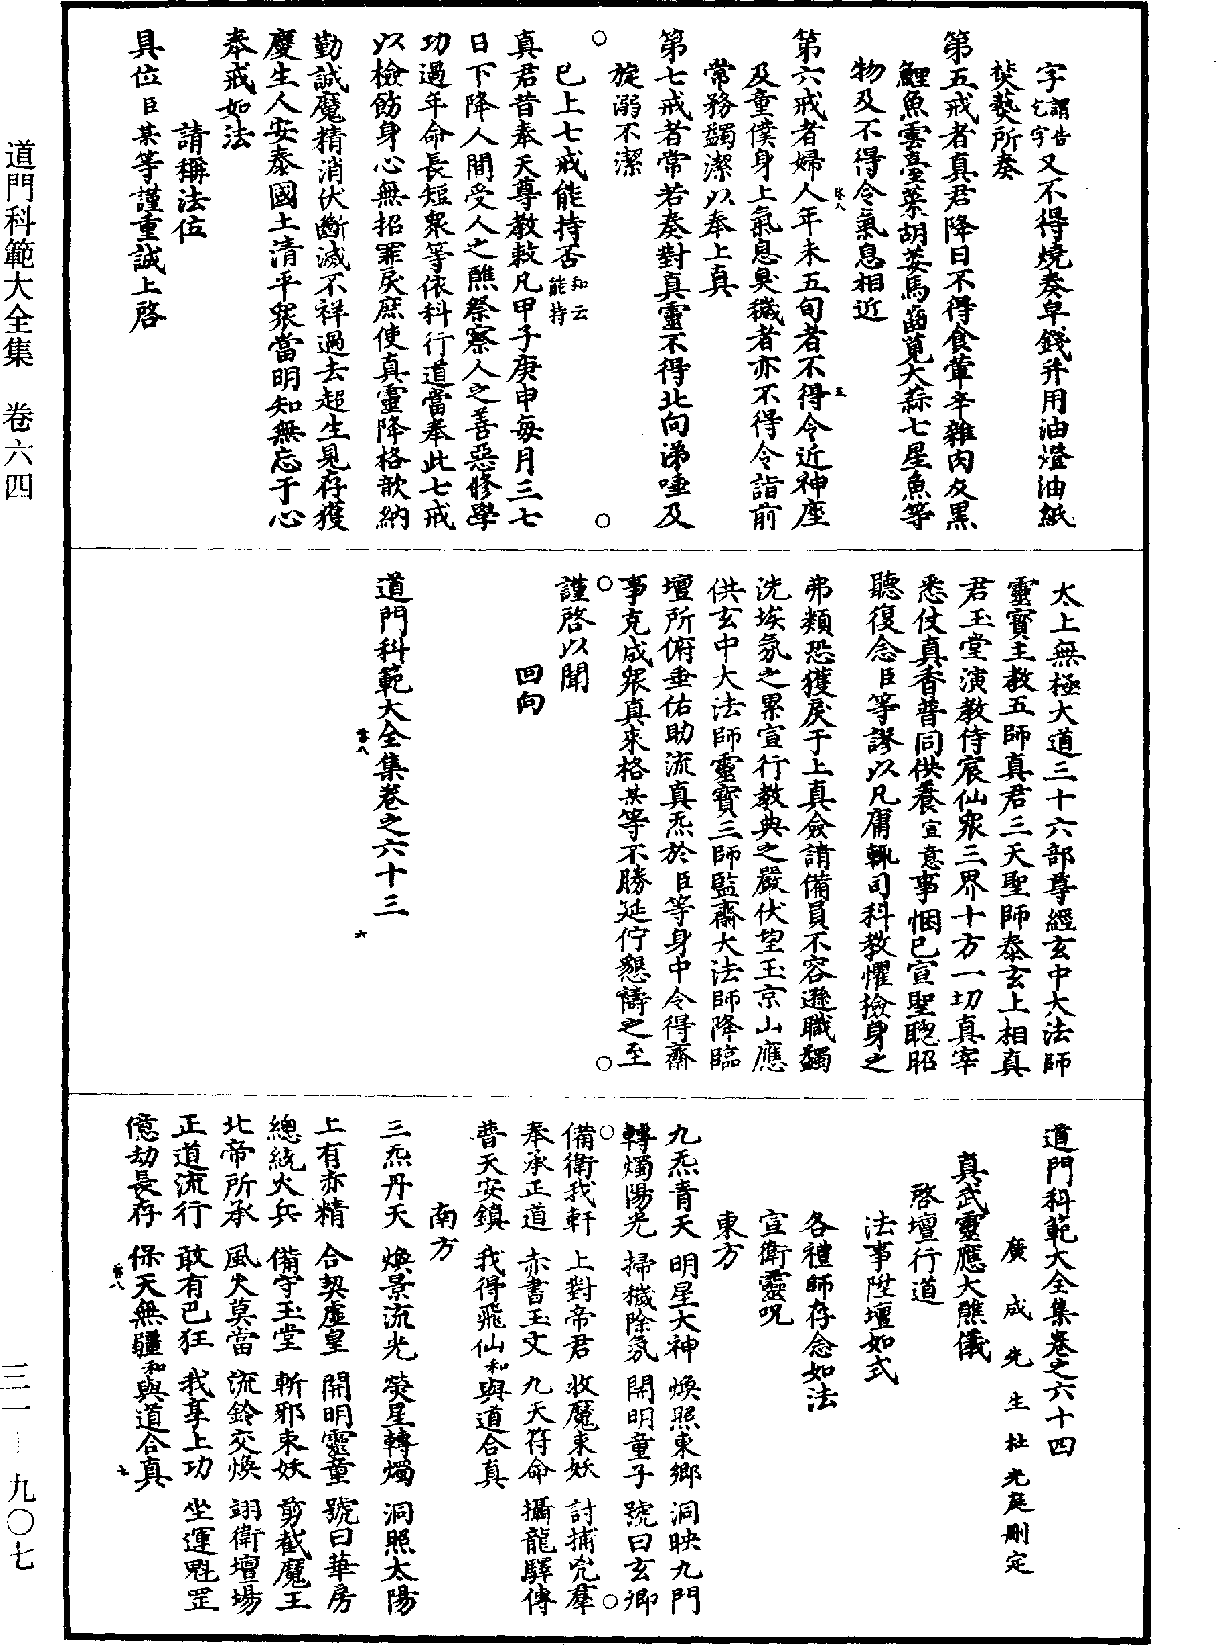 道門科範大全集　卷六四
三一—九〇七
字謂告乞字又不得燒奏阜錢并用油燈油紙
焚爇所奏
第五戒者真君降日不得食葷辛雜肉及黑
鯉魚雲臺菜胡荽馬齒莧大蒜七星魚等
物及不得令氣息相近
第六戒者婦人年未五旬者不得令近神座
及童僕身上氣息臭穢者亦不得令詣前
常務蠲潔以奉上真
第七戒者常若奏對真靈不得北向涕唾及
旋溺不潔
已上七戒能持否知云能持
真君昔奉天尊教敕凡甲子庚申每月三七
日下降人間受人之醮祭察人之善惡修學
功過年命長短衆等依科行道當奉此七戒
以檢飭身心無招罪戾庶使真靈降格歆納
勤誠魔精消伏斷滅不祥過去超生見存獲
慶生人安泰國土清平衆當明知無忘于心
奉戒如法
請稱法位
具位臣某等謹重誠上啓
太上無極大道三十六部尊經玄中大法師
靈寶主教五師真君三天聖師泰玄上相真
君玉堂演教侍宸仙衆三界十方一切真宰
悉仗真香普同供養宣意事悃已宣聖聰昭
聽復念臣等謬以凡庸輒司科教懼撿身之
弗類恐獲戾于上真僉請備員不容遜職蠲
洗埃氛之累宣行教典之嚴伏望玉京山應
供玄中大法師靈寶三師監齋大法師降臨
壇所俯垂佑助流真炁於臣等身中令得齋
事克成衆真來格某等不勝延佇懇禱之至
謹啓以聞
回向
道門科範大全集卷之六十三
道門科範大全集卷之六十四
廣成先生杜光庭刪定
真武靈應大醮儀
啓壇行道
法事陞壇如式
各禮師存念如法
宣衛靈呪
東方
九炁青天　明星大神　煥照東鄉　洞映九門
轉燭陽光　掃穢除氛　開明童子　號曰玄卿
備衛我軒　上對帝君　收魔束妖　討捕兇羣
奉承正道　赤書玉文　九天符命　攝龍驛傳
普天安鎮　我得飛仙和與道合真
南方
三炁丹天　煥景流光　熒星轉燭　洞照太陽
上有赤精　合契虛皇　開明靈童　號曰華房
總統火兵　備守玉堂　斬邪束妖　剪截魔王
北帝所承　風火莫當　流鈴交煥　翊衛壇場
正道流行　敢有巴狂　我享上功　坐運魁罡
億劫長存　保天無疆和與道合真